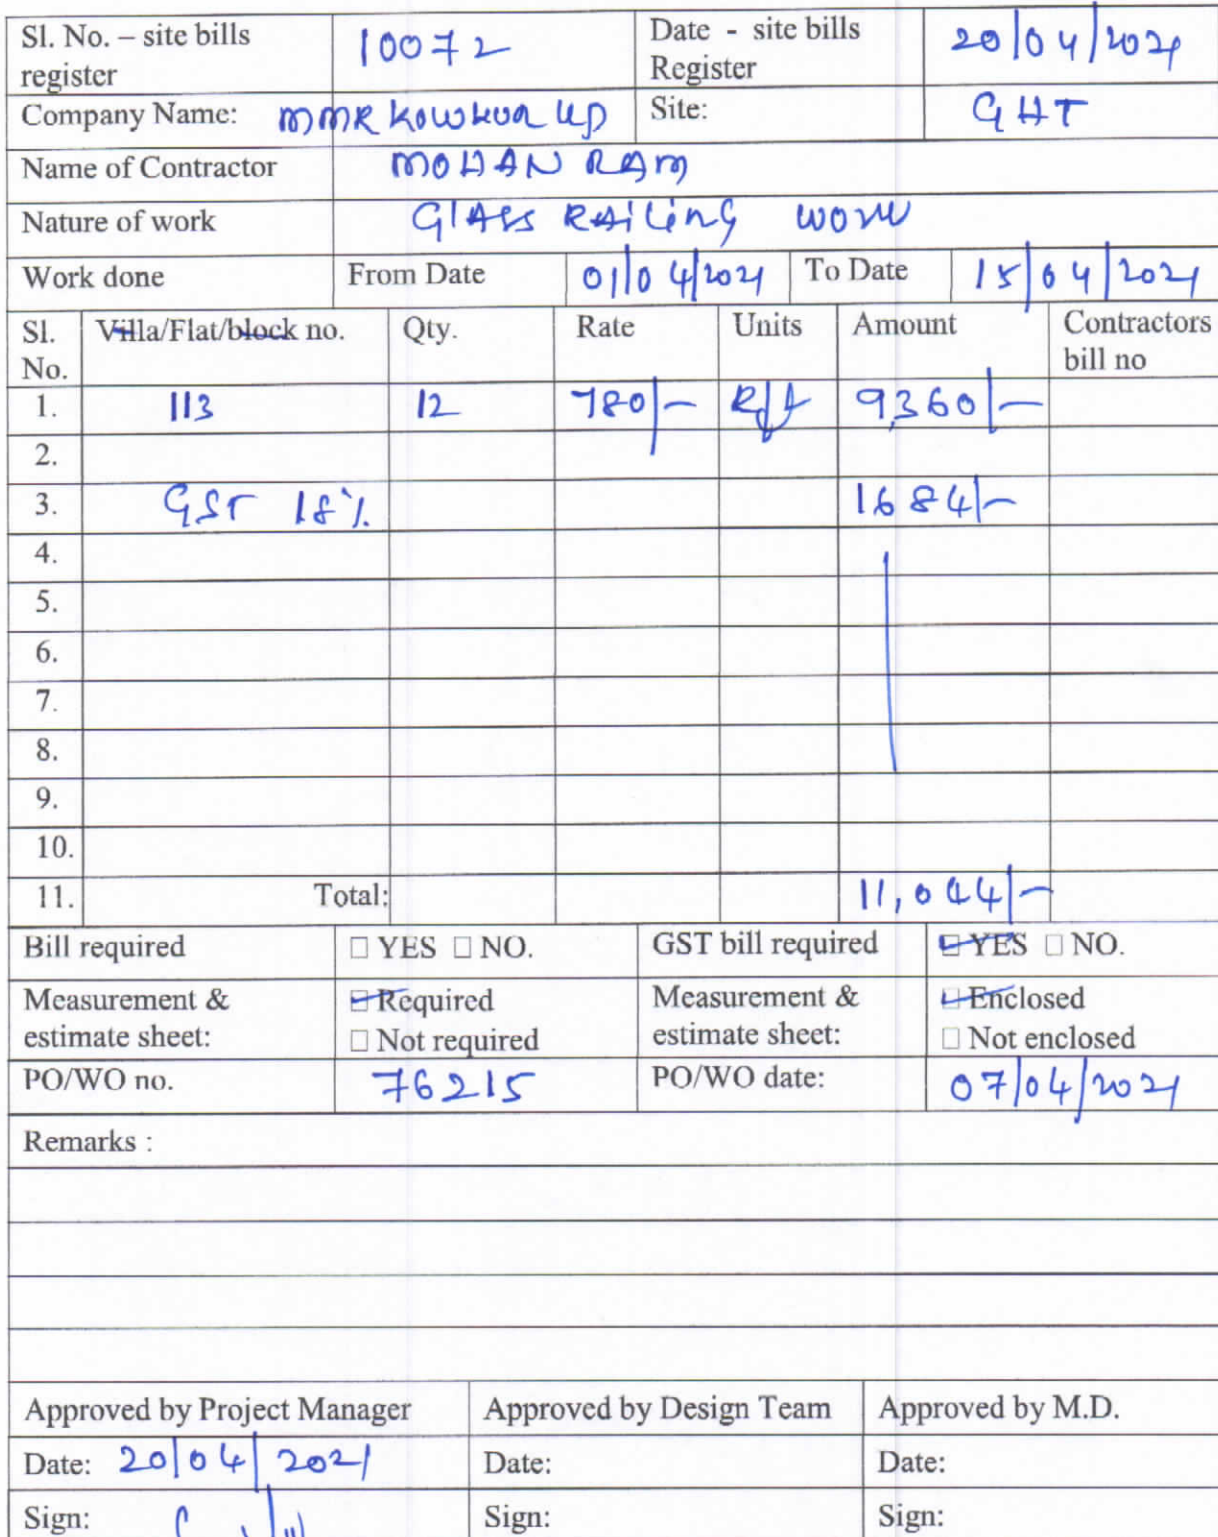 Sl. No. – site bills register 10072 Date - site bills Register 20/04/2021
Company Name: MMR KOWKUR LLP Site: GHT
Name of Contractor MOHAN RAM
Nature of work GLASS RAILING WORK
Work done From Date 01/04/2021 To Date 15/04/2021
Sl. No. Villa/Flat/block no. Qty. Rate Units Amount Contractors bill no
1. 113 12 780/- Rft 9,360/-
2.
3. GST 18% 1684/-
4.
5.
6.
7.
8.
9.
10.
11. Total: 11,044/-
Bill required ☐ YES ☐ NO. GST bill required ☑ YES ☐ NO.
Measurement & estimate sheet: ☑ Required ☐ Not required Measurement & estimate sheet: ☑ Enclosed ☐ Not enclosed
PO/WO no. 76215 PO/WO date: 07/04/2021
Remarks :
Approved by Project Manager Approved by Design Team Approved by M.D.
Date: 20/04/2021 Date: Date:
Sign: Sign: Sign: